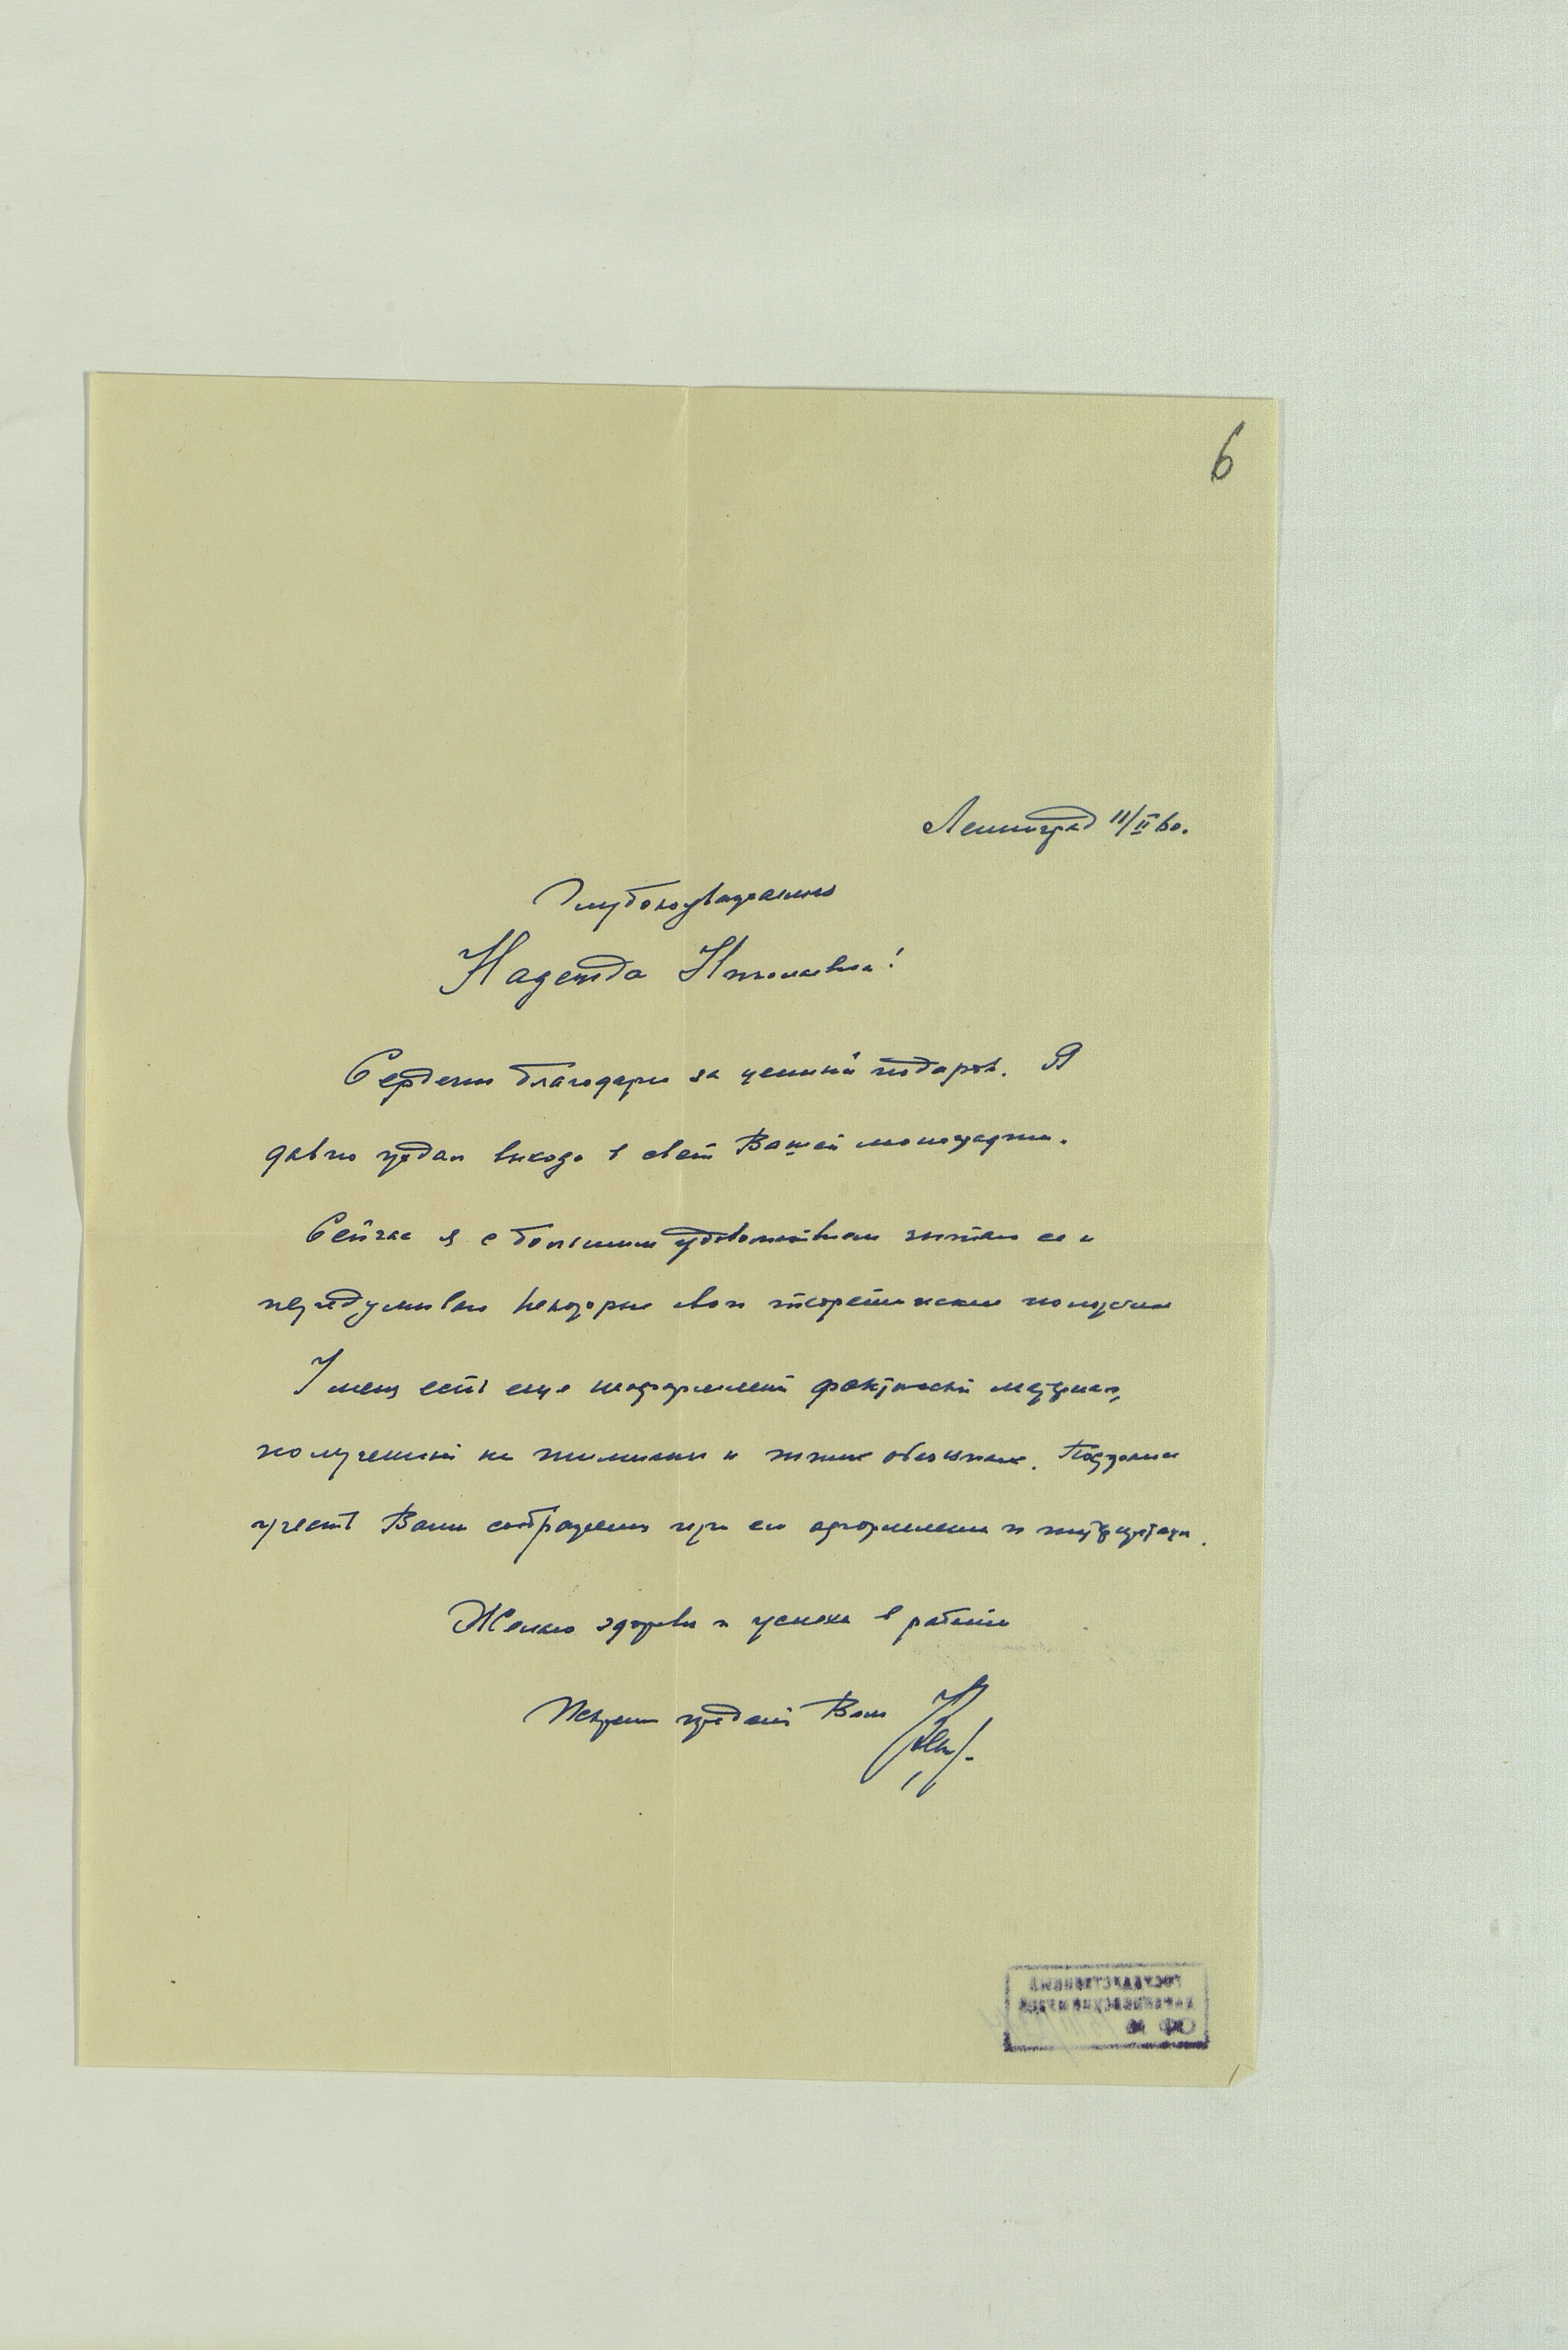 6
Ленинград 11/II 60.
Глубокоуважаемая
Надежда Николаевна!
Сердечно благодарю за ценный подарок. Я
давно ждал выхода в свет Вашей монографии.
Сейчас я с большим удовольствием читаю ее и
передумываю некоторые свои теоретические положения
У меня есть еще неоформленный фактический материал,
полученный на и низших обезьянах. Постараюсь
учесть Ваши соображения при его оформлении и интерпретации.
Желаю здоровья и успехов в работе
Искренне преданный Вам